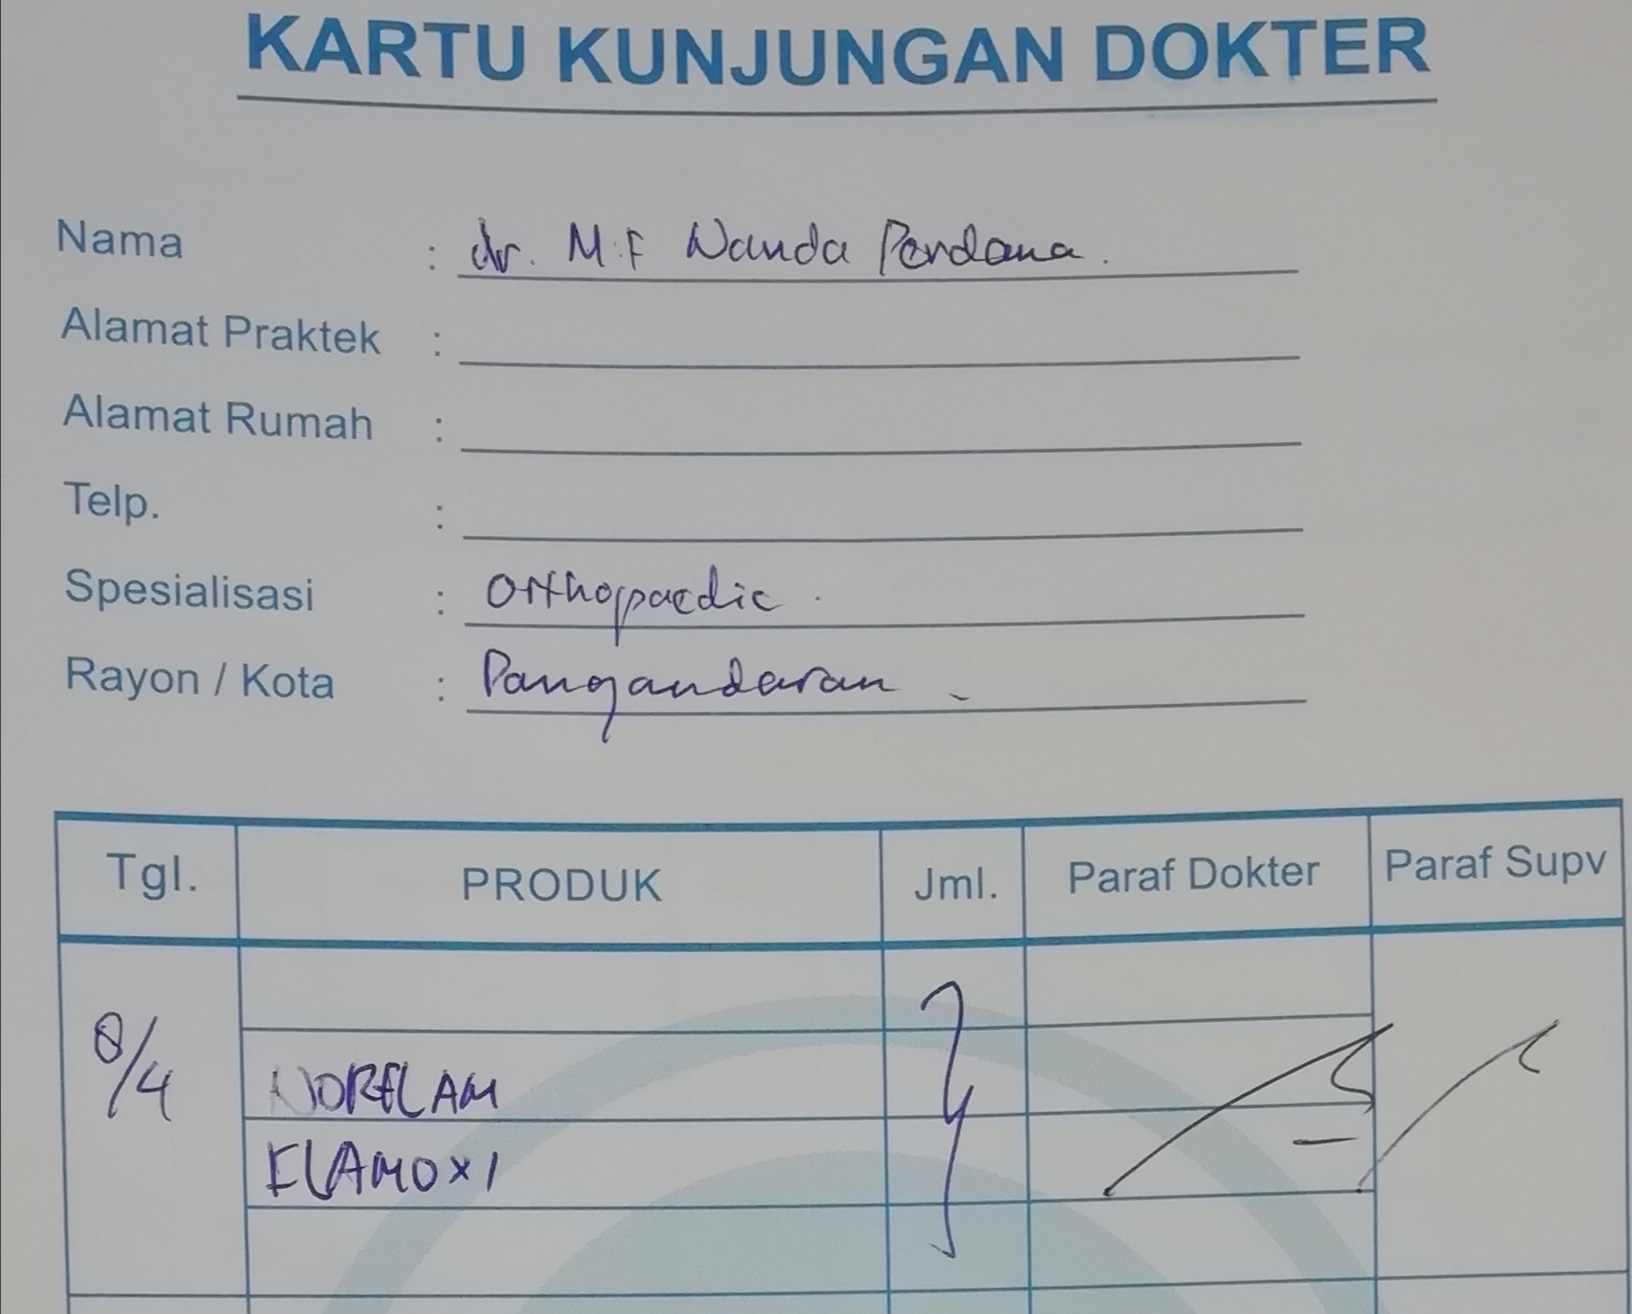 KARTU KUNJUNGAN DOKTER
Nama : dr. M.F Nanda Perdana.
Alamat Praktek :
Alamat Rumah :
Telp. :
Spesialisasi : Orthopaedic.
Rayon / Kota : Pangandaran -
Tgl. PRODUK Jml. Paraf Dokter Paraf Supv
8/4
NORFLAM
FLAMOXI